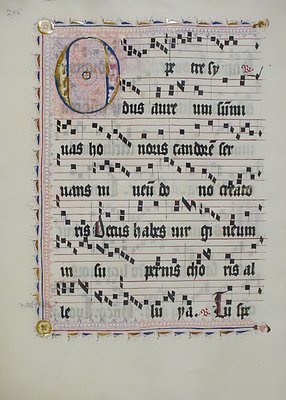 O pe tre sy V.
dus aure um sum
uas ho nous candore ser
uans in ueni do no creato
ris Decus habes uir gi neum
in su pernis cho ris al
le lu ya. V. Tu spe